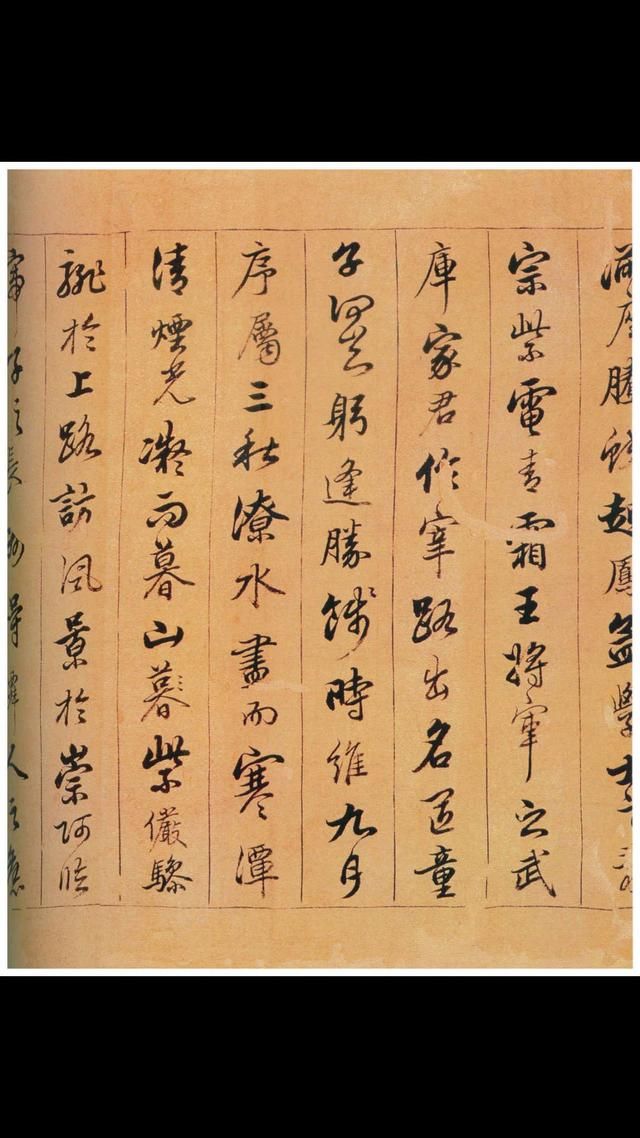 滿座騰蛟起鳳孟學士之詞
宗紫電青霜王將軍之武
庫家君作宰路出名區童
子何知躬逢勝餞時維九月
序屬三秋潦水盡而寒潭
清煙光凝而暮山暮紫儼驂
騑於上路訪風景於崇阿臨
帝子之長洲得僊人之舊